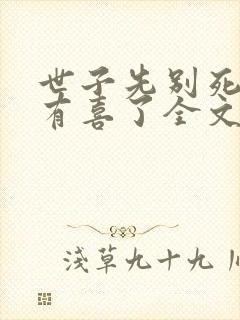 世子先别死
有喜了全文
浅草九十九